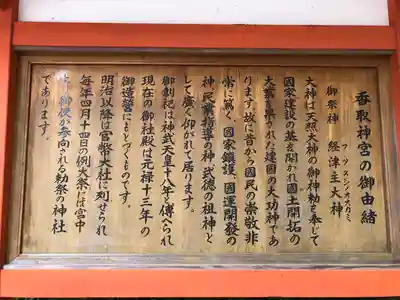 香取神宮の御由緒
フツヌシノオオカミ
御祭神 経津主大神
大神は天照大神の御神勅を奉じて
國家建設の基を開かれ國土開拓の
大業を果された建国の大功神であ
ります。故に昔から国民の崇敬非
常に篤く、國家鎮護、國運開發の
神、民業指導の神、武徳の祖神と
して廣く仰がれて居ります。
御創祀は神武天皇十八年と傳へられ
現在の御社殿は元禄十三年の
御造営にもとづくものです。
明治以降は官幣大社に列せられ
毎年四月十四日の例大祭には宮中
より御使が参向される勅祭の神社
であります。